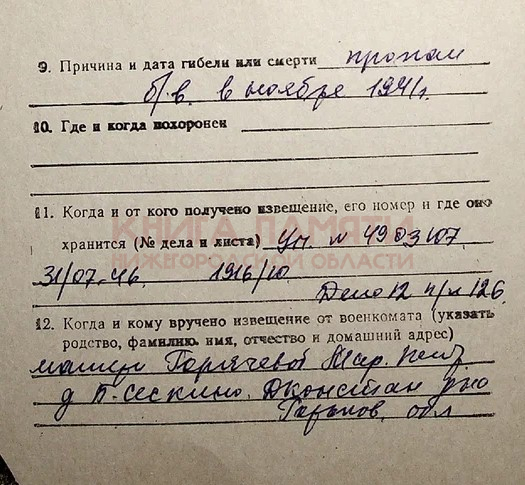 9. Причина и дата гибели или смерти пропал
б/в. в ноябре 1941г.
10. Где и когда похоронен
11. Когда и от кого получено извещение, его номер и где оно
КНИГА ПАМЯТИ
хранится (№ дела и листа) Уп. № 4903107
НИЖЕГОРОДСКОЙ ОБЛАСТИ
31/07.46. 1916/10
Дело 12 п/н 126
12. Когда и кому вручено извещение от военкомата (указать
родство, фамилию, имя, отчество и домашний адрес)
матери Горячевой Мар.
д Б-Сескино. Дконстан
Горьков. обл